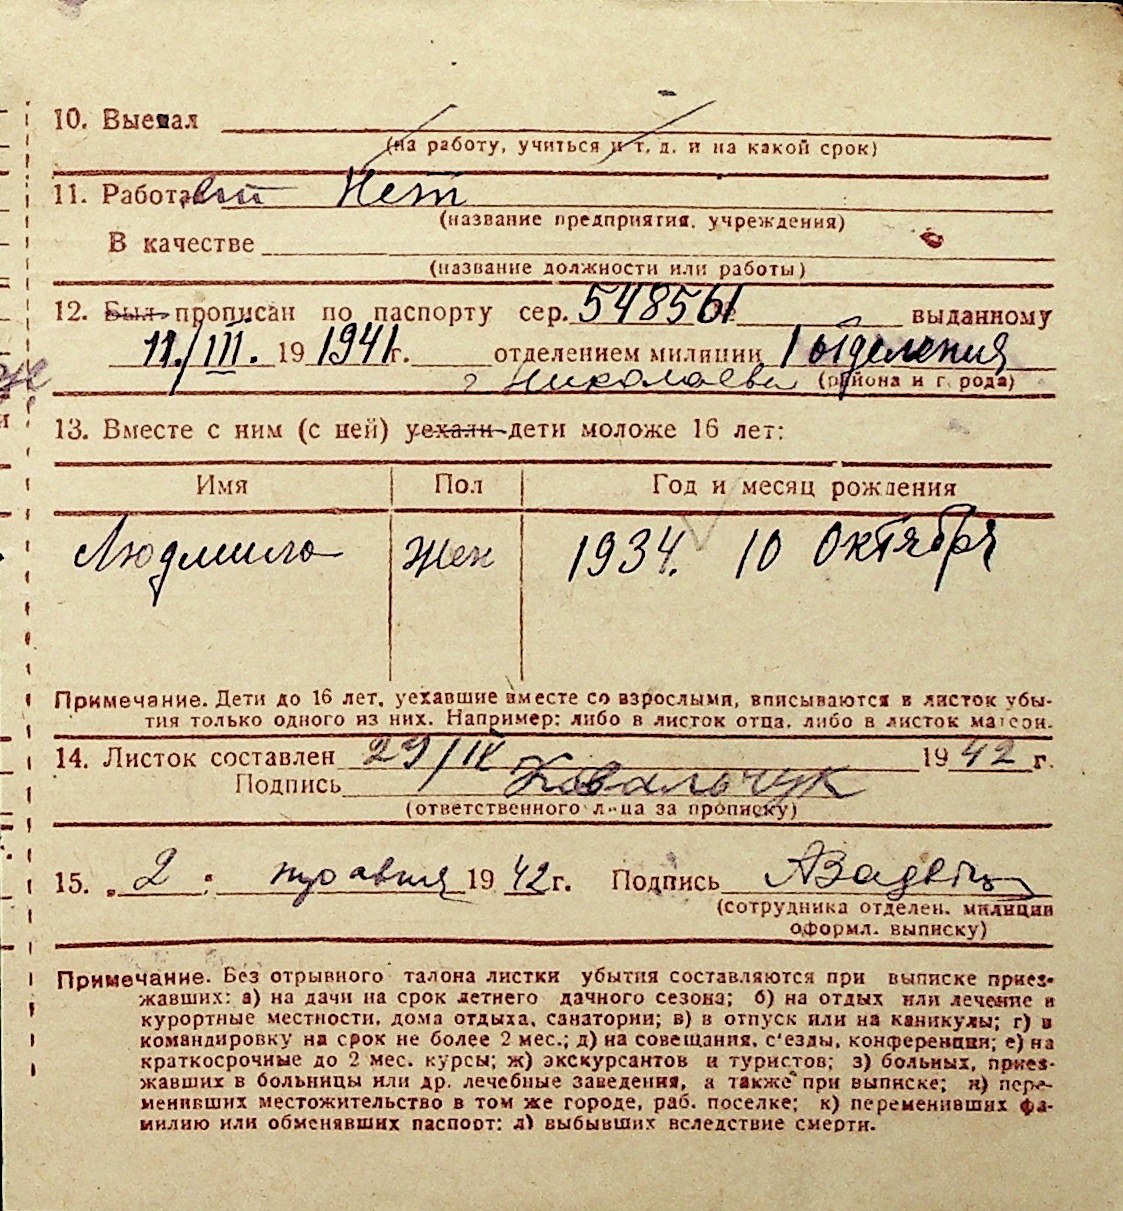 10. Выехал
(на работу, учиться и т. д. и на какой срок)
11. Работает Нет
(название предприятия, учреждения)
В качестве
(название должности или работы)
12. Был прописан по паспорту сер. 548561 выданному
11/III. 19 1941 г. отделением милиции 1 отделения
г Николаева (района и города)
13. Вместе с ним (с ней) уехали дети моложе 16 лет:
Имя Пол Год и месяц рождения
Людмила Жен 1934. 10 Октября
Примечание. Дети до 16 лет, уехавшие вместе со взрослыми, вписываются в листок убы-
тия только одного из них. Например: либо в листок отца, либо в листок матери.
14. Листок составлен 29/IV 1942 г.
Подпись Ковальчук
(ответственного лица за прописку)
15. „ 2 " 1942 г. Подпись
(сотрудника отделен. милиции
оформл. выписку)
Примечание. Без отрывного талона листки убытия составляются при выписке приез-
жавших: а) на дачи на срок летнего дачного сезона; б) на отдых или лечение в
курортные местности, дома отдыха, санатории; в) в отпуск или на каникулы; г) в
командировку на срок не более 2 мес.; д) на совещания, с'езды, конференции; е) на
краткосрочные до 2 мес. курсы; ж) экскурсантов и туристов; з) больных, приез-
жавших в больницы или др. лечебные заведения, а также при выписке; и) пере-
менивших местожительство в том же городе, раб. поселке; к) переменивших фа-
милию или обменявших паспорт; л) выбывших вследствие смерти.